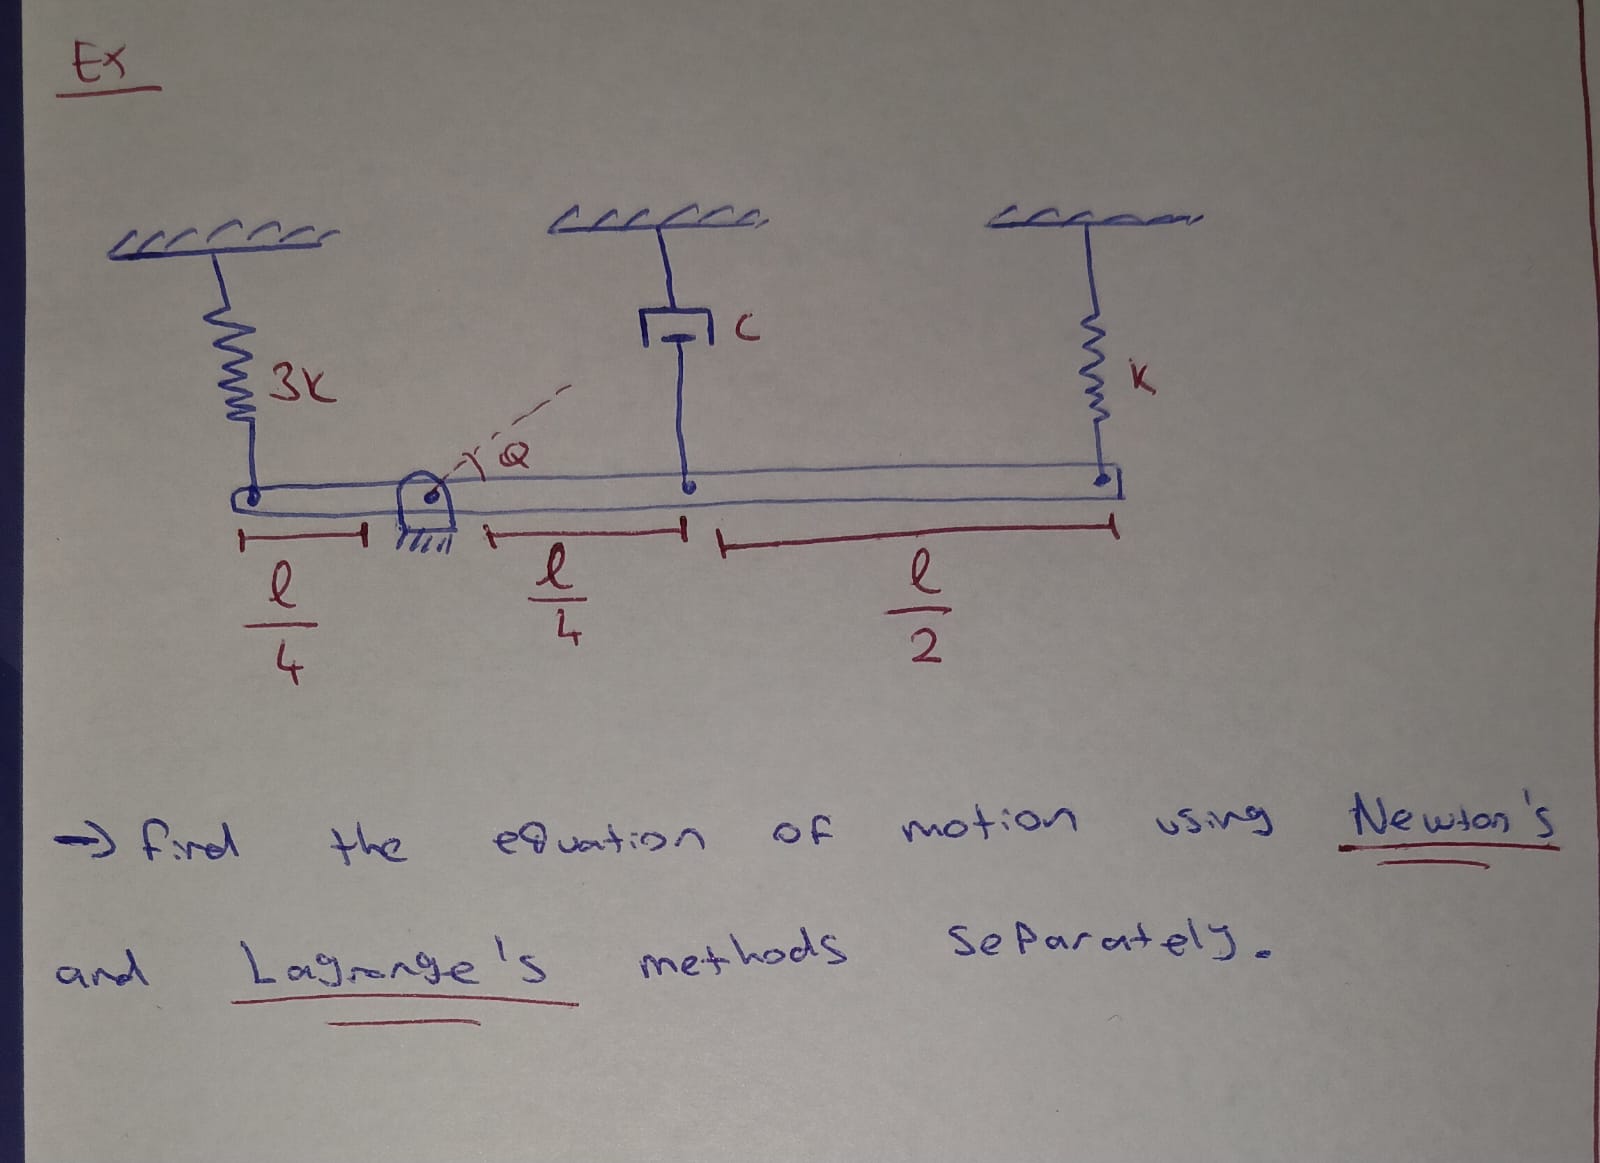 Ex
3K
C
K
θ
l/4
l/4
l/2
→ find the equation of motion using Newton's
and Lagrange's methods separately.